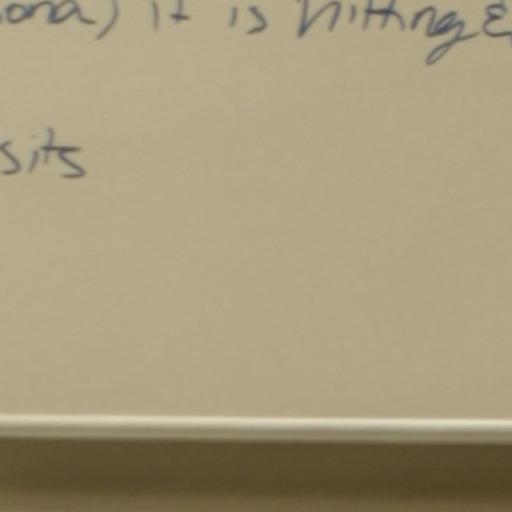 iona) it is hitting &
sits